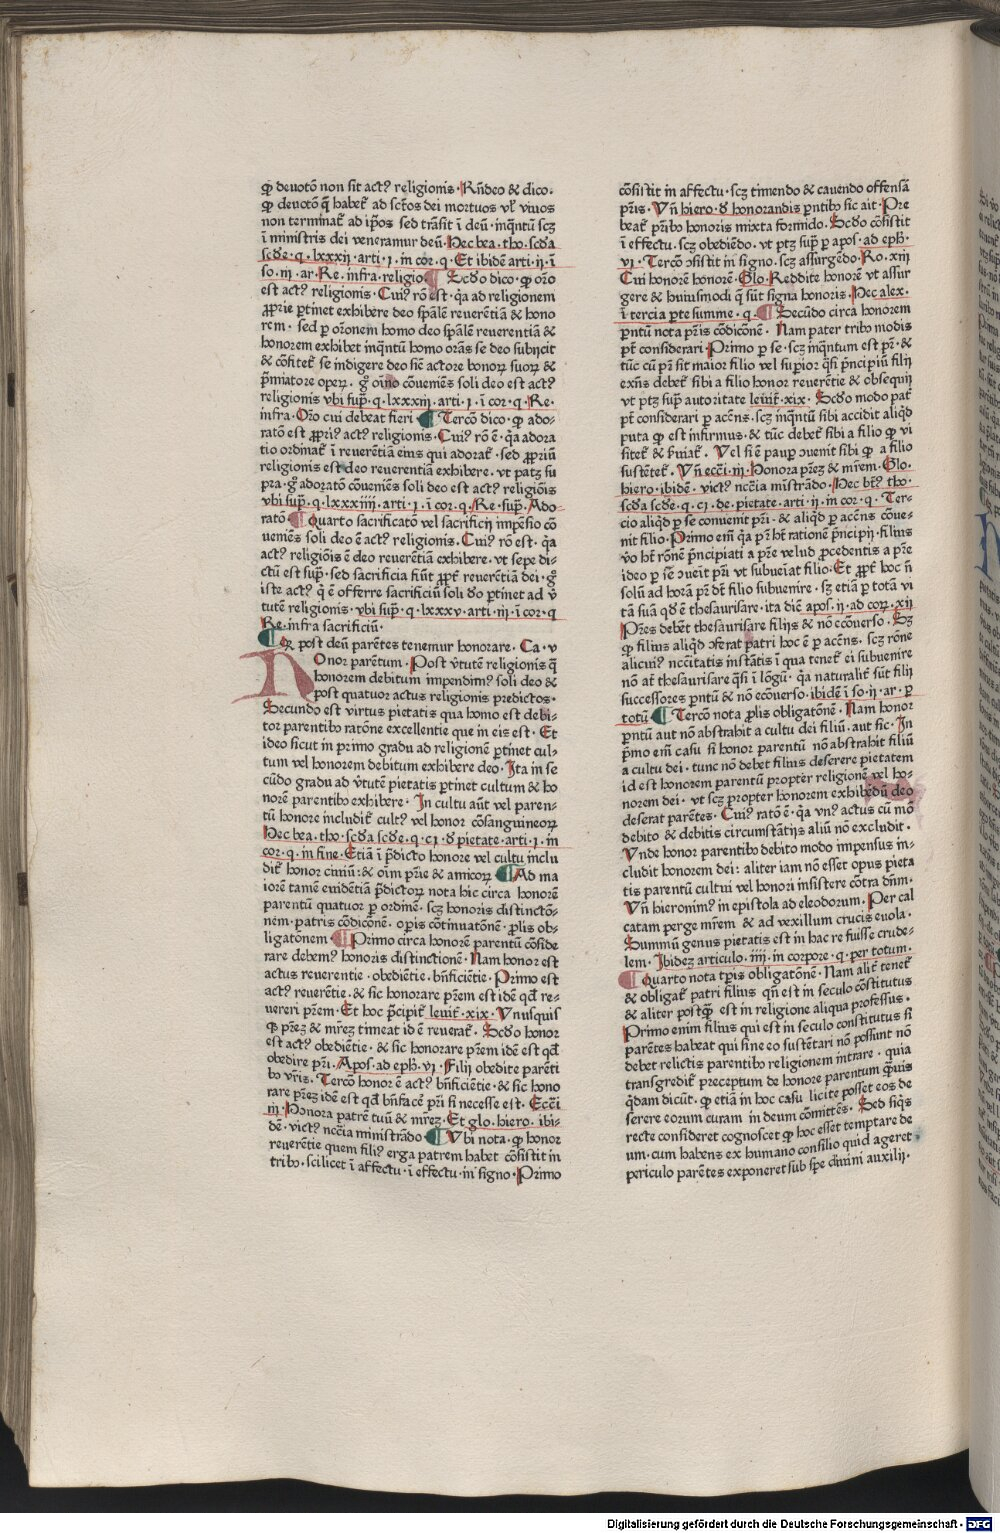 ꝙ deuotō non sit actꝰ religionis. Rn̄deo & dico.
ꝙ deuotō q̄ habet᷑ ad sct̄os dei mortuos vl᷑ viuos
non terminat᷑ ad ip̄os sed trāsit ī deū. inqntū scꝫ
ī ministris dei veneramur deū. Hec bea. tho. scda
scde. q. lxxxij. arti. j. in cor. q. Et ibidē arti. ij. ī
so. iij. ar. Re. infra. religio. ¶ Scdo dico. ꝙ oro
est actꝰ religionis. Cuiꝰ rō est. qa ad religionem
ꝓprie ꝑtinet exhibere deo spālē reuerētiā & hono
rem. sed ꝑ orōnem homo deo spālē reuerentiā &
honorem exhibet inqntū homo orās se deo subijcit
& cōfitet᷑ se indigere deo siē actore bonoꝝ suoꝝ &
p̄miatore opeꝝ. gͦ oino cōueniēs soli deo est actꝰ
religionis vbi sup̄. q. lxxxiij. arti. j. ī cor. q. Re.
infra. Orō cui debeat fieri ¶ Tercō dico. ꝙ ado-
ratō est ꝓpriꝰ actꝰ religionis. Cuiꝰ rō ē. qa adora
tio ordinat᷑ ī reuerētiā eius qui adorat᷑. sed ꝓpriū
religionis est deo reuerentiā exhibere. vt patꝫ su
pra. gͦ adoratō cōueniēs soli deo est actꝰ religiōis
vbi sup̄. q. lxxxiiij. arti. j. ī cor. q. Re. sup̄. Ado-
ratō ¶ Quarto sacrificatō vel sacrificij impēsio cō
ueniēs soli deo ē actꝰ religionis. Cuiꝰ rō est. qa
actꝰ religiōis ē deo reuerētiā exhibere. vt sepe di-
ctū est sup̄. sed sacrificia fiūt ꝓpt᷑ reuerētiā dei. gͦ
iste actꝰ q ē offerre sacrificiū soli do ꝑtinet ad v̄
tutē religionis. vbi sup̄. q. lxxxv. arti. iij. ī cor. q
Re. infra sacrificiū.
¶ Qꝫ post deū parētes tenemur honorare. Ca. v
Honor parētum. Post v̄tutē religionis q̄
honorem debitum impendimꝰ soli deo &
post quatuor actus religionis predictos.
Secundo est virtus pietatis qua homo est debi-
tor parentibo ratōne excellentie que in eis est. Et
ideo sicut in primo gradu ad religionē ꝑtinet cul-
tum vel honorem debitum exhibere deo. Ita in se
cūdo gradu ad v̄tutē pietatis ꝑtinet cultum & ho
norē parentibo exhibere. In cultu aūt vel paren-
tū honore includit᷑ cultꝰ vel honor cōsanguineoꝝ
Hec bea. tho. scda scde. q. cj. d pietate. arti. j. in
cor. q. in fine. Etiā ī p̄dicto honore vel cultu inclu
dit᷑ honor ciuiū: & oim pr̄ie & amicoꝝ ¶ Ad ma
iorē tamē euidētiā p̄dictoꝝ nota hic circa honorē
parentū quatuor ꝑ ordinē. scꝫ honoris distinctō-
nem. patris cōdicōnē. oꝑis cōtinuatōnē. ꝓlis ob-
ligatōnem ¶ Primo circa honorē parentū cōside
rare debemꝰ honoris distinctionē. Nam honor est
actus reuerentie. obediētie. bn̄ficiētie. Primo est
actꝰ reuerētie. & sic honorare pr̄em est idē qd re-
uereri pr̄em. Et hoc p̄cipit᷑ leuit᷑. xix. Vnusquisqꝫ
ꝙ pr̄eꝫ & mr̄eꝫ timeat id ē reuerat᷑. Scdo honor
est actꝰ obediētie. & sic honorare pr̄em idē est qd
obedire pr̄i. Apos. ad eph. vj. Filij obedite parēti
bo vr̄is. Tercō honor ē actꝰ bn̄ficiētie. & sic hono
rare pr̄eꝫ idē est qd bn̄facē pr̄i si necesse est. Ecci
iij. Honora patrē tuū & mr̄eꝫ. Et glo. hiero. ibi-
dē. victꝰ nccīa ministrādo ¶ Vbi nota. ꝙ honor
reuerētie quem filiꝰ erga patrem habet cōsistit in
tribo. scilicet ī affectu. ī effectu. in signo. Primo
cōsistit in affectu. scꝫ timendo & cauendo offensā
pr̄is. Vn̄ hiero. d honorandis ꝑntibo sic ait. Pre
beat᷑ pr̄ibo honoris mixta formido. Scdo cōsistit
ī effectu. scꝫ obediēdo. vt ptꝫ sup̄ ꝑ apos. ad eph.
vj. Tercō ꝯsistit in signo. scꝫ assurgēdo. Ro. xiij
Cui honorē honorē. Glo. Reddite honorē vt assur
gere & huiusmodi q̄ sūt signa honoris. Hec alex.
ī tercia ꝑte summe. q. ¶ Secūdo circa honorem
ꝑntū nota pr̄is cōdicōnē. Nam pater tribo modis
pt᷑ considerari. Primo ꝑ se. scꝫ inqntum est pr̄. &
tūc cū pr̄ sit maior filio vel suꝑior qsi p̄ncipiū filij
exn̄s debet᷑ sibi a filio honor reuerētie & obsequij
vt ptꝫ sup̄ autoritate leuit᷑. xix. Scdo modo pat᷑
pt᷑ considerari ꝑ acēns. scꝫ inqntū sibi accidit aliqd
puta ꝙ est infirmus. & tūc debet᷑ sibi a filio ꝙ vi
sitet᷑ & ẜuiat᷑. Vel si ē pauꝑ ꝯuenit sibi ꝙ a filio
sustētet᷑. Vn̄ ecci. iij. Honora pr̄eꝫ & mr̄em. Glo.
hiero. ibidē. victꝰ nccīa mīstrādo. Hec bt̄ꝰ tho.
scda scde. q. cj. de pietate. arti. ij. in cor. q. Ter-
cio aliqd ꝑ se conuenit pr̄i. & aliqd ꝑ acēns cōue-
nit filio. Primo em̄ qa pr̄ ht᷑ rationē p̄ncipij. filius
vͦo ht᷑ rōnē p̄ncipiati a pr̄e velud ꝓcedentis a pr̄e
ideo ꝑ sē ꝯueīt pr̄i vt subueīat filio. Et ꝓpt᷑ hoc n̄
solū ad horā pr̄ dt᷑ filio subuenire. sꝫ etiā ꝑ totā vi
tā suā qd ē thesaurisare. ita diē apos. ij. ad coꝝ. xij
Pr̄es debēt thesaurisare filijs & nō ecōuerso. Sꝫ
ꝙ filius aliqd ꝯferat patri hoc ē ꝑ acēns. scꝫ rōne
alicuiꝰ nccītatis instātis ī qua tenet᷑ ei subuenire
nō at᷑ thesaurisare qsi ī lōgū. qa naturalit᷑ sūt filij
successores ꝑntū & nō ecōuerso. ibidē ī so. ij. ar. ꝑ
totū ¶ Tercō nota ꝓlis obligatōnē. Nam honor
ꝑntū aut nō abstrahit a cultu dei filiū. aut sic. In
p̄mo em̄ casu si honor parentū nō abstrahit filiū
a cultu dei. tunc nō debet filius deserere pietatem
id est honorem parentū propter religionē vel ho-
norem dei. vt scꝫ propter honorem exhibēdū deo
deserat parētes. Cuiꝰ ratō ē. qa vnꝰ actus cū mō
debito & debitis circumstātijs aliū nō excludit.
Vnde honor parentibo debito modo impensus in-
cludit honorem dei: aliter iam nō esset opus pieta
tis parentū cultui vel honori insistere cōtra dn̄m.
Vn̄ hieronimꝰ in epistola ad eleodorum. Per cal
catam perge mr̄em & ad vexillum crucis euola.
Summū genus pietatis est in hac re fuisse crude-
lem. Ibideꝫ articulo. iiij. in corpore. q. per totum.
¶ Quarto nota tꝑis obligatōnē. Nam alit᷑ tenet᷑
& obligat᷑ patri filius qn̄ est in seculo cōstitutus
& aliter postꝙ̄ est in religione aliqua professus.
Primo enim filius qui est in seculo constitutus si
parētes habeat qui sine eo sustētari nō possunt nō
debet relictis parentibo religionem intrare. quia
transgredit᷑ preceptum de honore parentum ꝙ̄uis
qdam dicūt. ꝙ etiā in hoc casu licite posset eos de
serere eorum curam in deum cōmittēs. Sed siqs
recte consideret cognoscet ꝙ hoc esset temptare de
um. cum habens ex humano consilio quid ageret.
periculo parētes exponeret sub spe diuini auxilij.
Digitalisierung gefördert durch die Deutsche Forschungsgemeinschaft - DFG